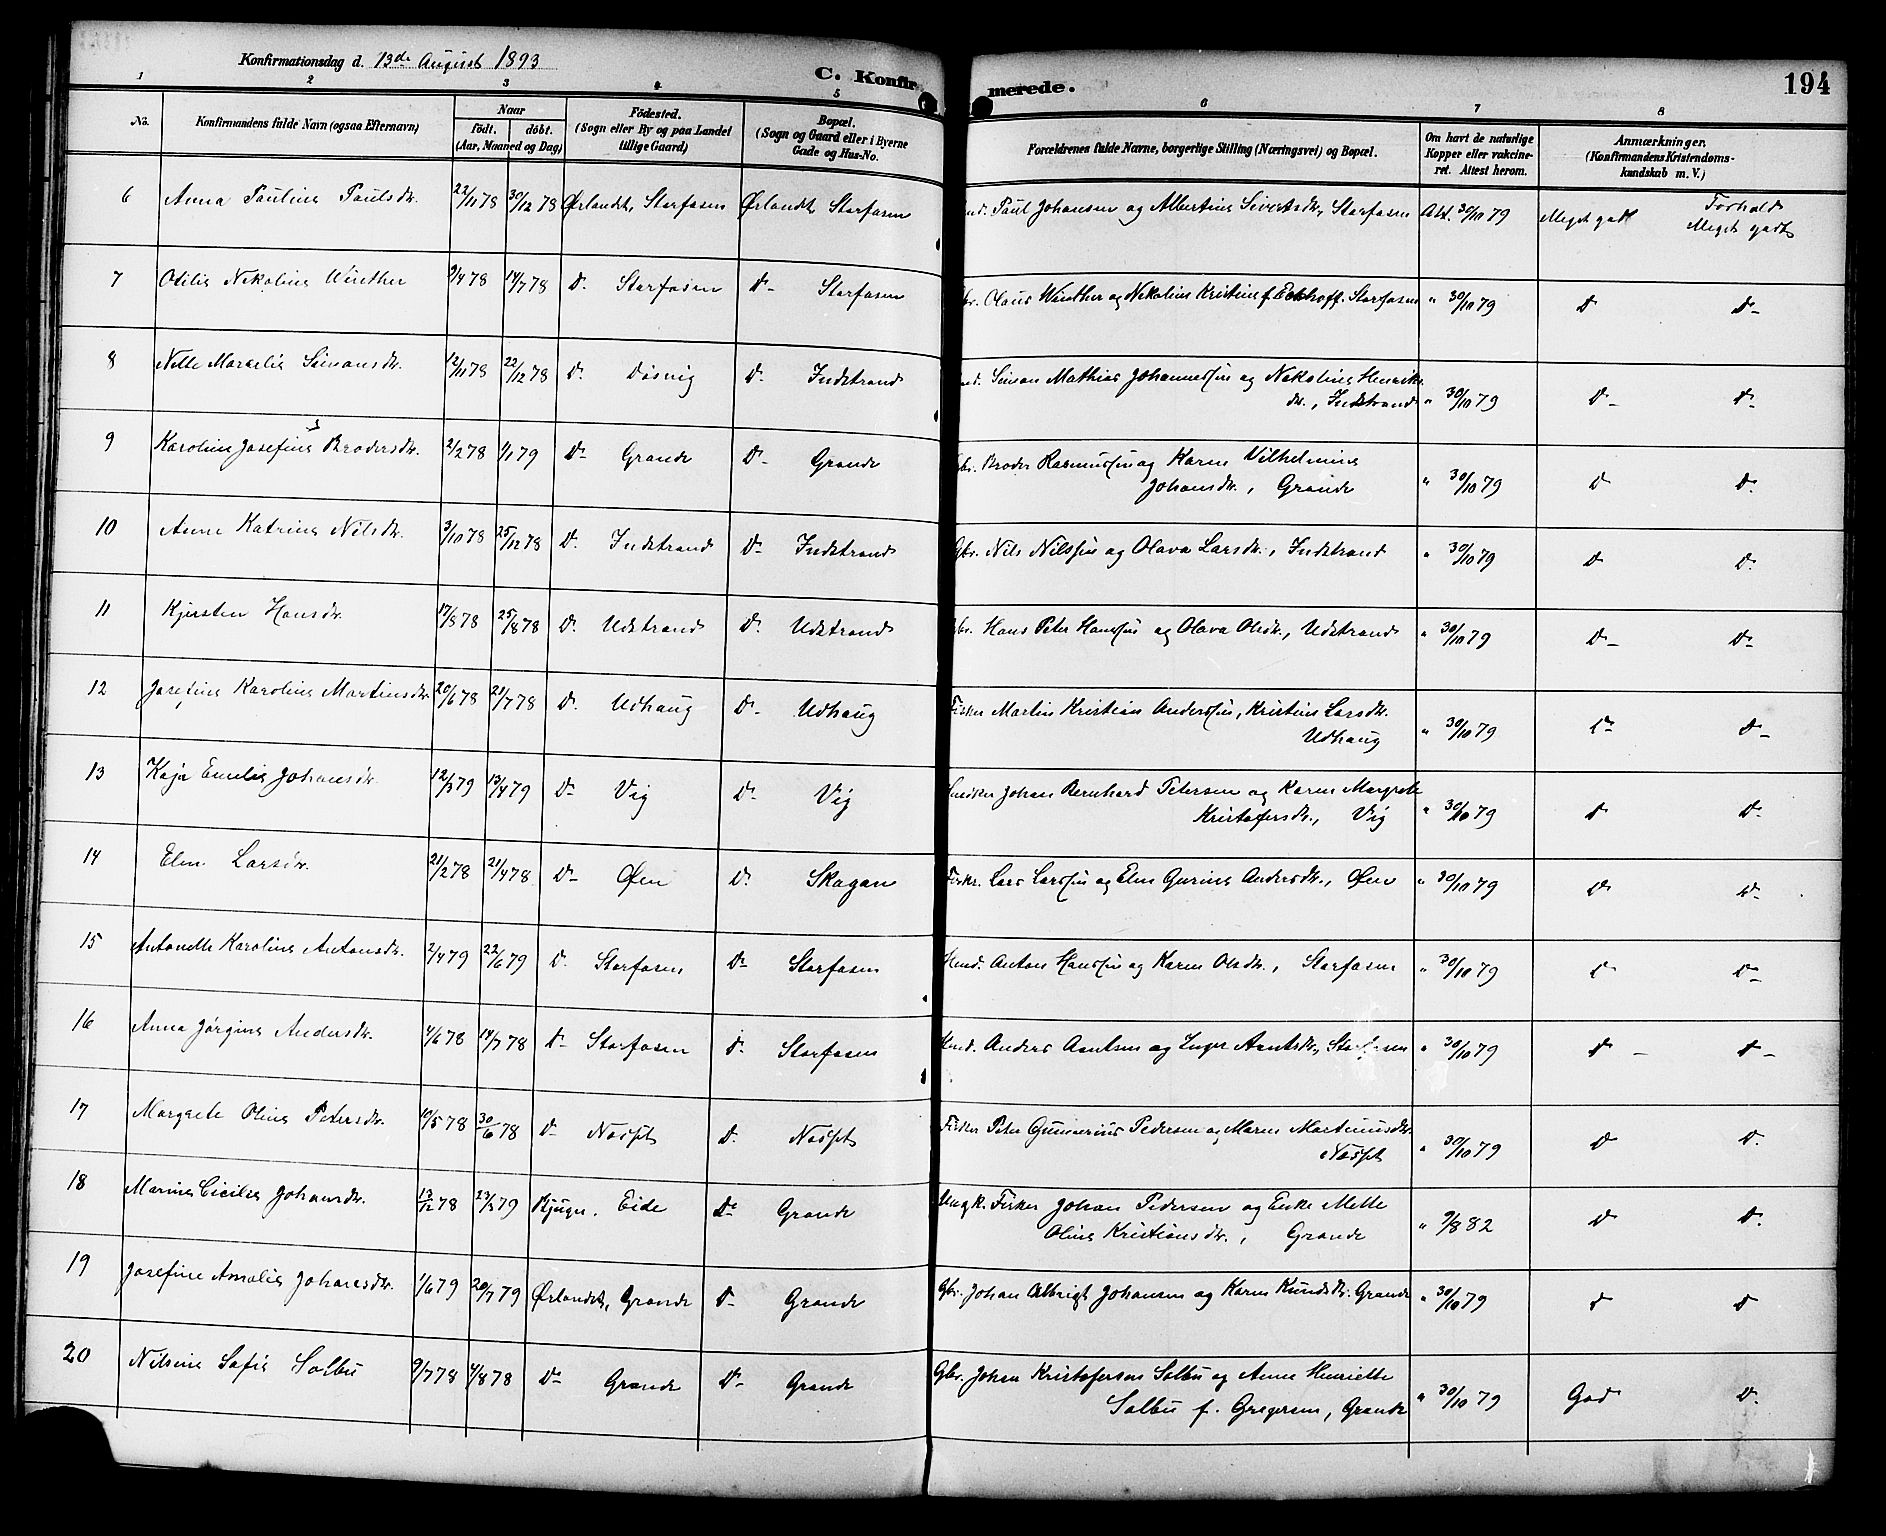 Konfirmationsdag d. 13de August 1893
C. Konfirmerede.
194
1 2 3 4 5 6 7 8
No. Konfirmandens fulde Navn (ogsaa Efternavn) Naar født. døbt. (Aar, Maaned og Dag) Fødested. (Sogn eller By og paa Landet tillige Gaard) Bopæl. (Sogn og Gaard eller i Byerne Gade og Hus-No. Forældrenes fulde Navne, borgerlige Stilling (Næringsvei) og Bopæl. Om havt de naturlige Kopper eller vakcineret. Attest herom. Anmærkninger. (Konfirmandens Kristendomskundskab m. V.)
6 Anna Pauline Paulsdr. 22/11 78 30/12 78 Ørlandet, Storfosen Ørlandet, Storfosen Paul Johansen og Albertine Sivertsdr., Storfosen Att. 30/10 79 Meget godt Forhold Meget godt
7 Otilie Nekoline Winther 9/4 78 14/7 78 D. Storfosen D. Storfosen Olaus Winther og Nekoline Kristine f. Eckhoff. Storfosen " 30/10 79 D D.
8 Nelle Marselie Simonsdr. 12/11 78 22/12 78 D. Døsvig D. Indstrand Simon Mathias Johannessen og Nekoline Henriks
dr., Indstrand " 30/10 79 D. D.
9 Karoline Josefine Brodersdr. 2/2 78 1/1 79 D. Grande D. Grande Gbr. Broder Rasmussen og Karen Vilhelmine
Johansdr., Grande " 30/10 79 D D.
10 Anne Katrine Nilsdr. 3/10 78 25/12 78 D. Indstrand D. Indstrand Gbr. Nils Nilssen og Olava Larsdr., Indstrand " 30/10 79 D. D.
11 Kjersten Hansdr. 17/8 78 25/8 78 D. Udstrand D. Udstrand Gbr. Hans Peter Hanssen og Olava Olsdr., Udstrand " 30/10 79 D. D.
12 Josefine Karoline Martinsdr. 20/6 78 21/7 78 D. Udhaug D. Udhaug Fisker Martin Kristian Anderssen, Kristine Larsdr.
Udhaug " 30/10 79 D. D.
13 Kaja Emilie Johansdr. 12/3 79 13/4 79 D. Vig D. Vig Johan Bernhard Petersen og Karen Margrete
Kristofersdr., Vig " 30/10 79 D D.
14 Elen Larsdr. 21/2 78 21/4 78 D. Øien D. Skagan Fisker. Lars Larssen og Elen Gurine Andersdr., Øien " 30/10 79 D. D.
15 Antonette Karoline Antonsdr. 2/4 79 22/6 79 D. Storfosen D. Storfosen Husd. Anton Hanssen og Karen Olsdr., Storfosen " 30/10 79 D D.
16 Anna Jørgine Andersdr. 4/6 78 14/7 78 D. Storfosen D. Storfosen Husd. Anders Arntsen og Inger Arntsdr., Storfosen " 30/10 79 D. D.
17 Margrete Oline Petersdr. 10/5 78 30/6 78 D. D. Fisker Peter Gunnerius Pedersen og Maren Martinusdr.
" 30/10 79 D D.
18 Marine Cicilie Johansdr. 13/12 78 23/3 79 Bjugn. Eide D. Grande Ungk. Fisker Johan Pedersen og Enke Mette
Oline Kristiansdr., Grande " 9/8 82 D D.
19 Josefine Amalie Johansdr. 1/6 79 20/7 79 Ørlandet, Grande D. Grande Gbr. Johan Albrigt Johansen og Karen Knudsdr. Grande " 30/10 79 D D
20 Nilsine Sofie Solbu 9/7 78 4/8 78 D. Grande D. Grande Gbr. Johan Kristofersen Solbu og Anne Henriette
Solbu f. Gregersen, Grande " 30/10 79 God D.